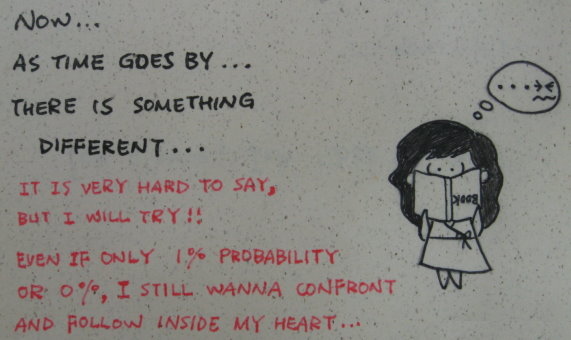 NOW...
AS TIME GOES BY...
THERE IS SOMETHING
DIFFERENT...
IT IS VERY HARD TO SAY,
BUT I WILL TRY!!
EVEN IF ONLY 1% PROBABILITY
OR 0%, I STILL WANNA CONFRONT
AND FOLLOW INSIDE MY HEART...
BOOK